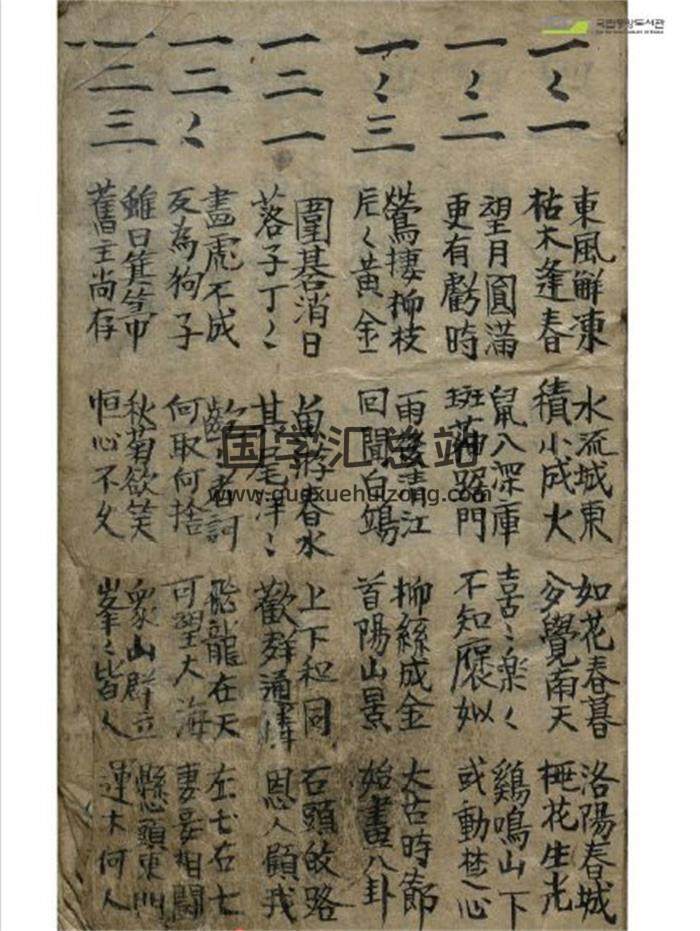 국립중앙도서관
一〻一
東風解凍 水流城東 如花春暮 洛陽春城
枯木逢春 積小成大 覺南天 花生光
一〻二
望月圓滿 鼠入深庫 喜〻樂〻 鷄鳴山下
更有虧時 斑猫 門 不知 姒 或動楚心
一〻三
鶯捿柳枝 雨後淸江 柳絲成金 太古時節
片〻黃金 回聞白鷗 首陽山景 始畫八卦
一二一
圍碁消日 魚游春水 上下和同 石頭 路
落子丁〻 其尾洋〻 歡群通隣 恩人顧我
一二〻
畫虎不成 者訶 飛龍在天 左七右七
反為狗子 何取何捨 可望大海 妻妾相鬪
一二三
雖曰箕箒 秋菊欲笑 衆山群立 懸頭東門
舊主尚存 恒心不久 峯〻皆人 何人
国学汇总站
www.guoxuehuizong.com